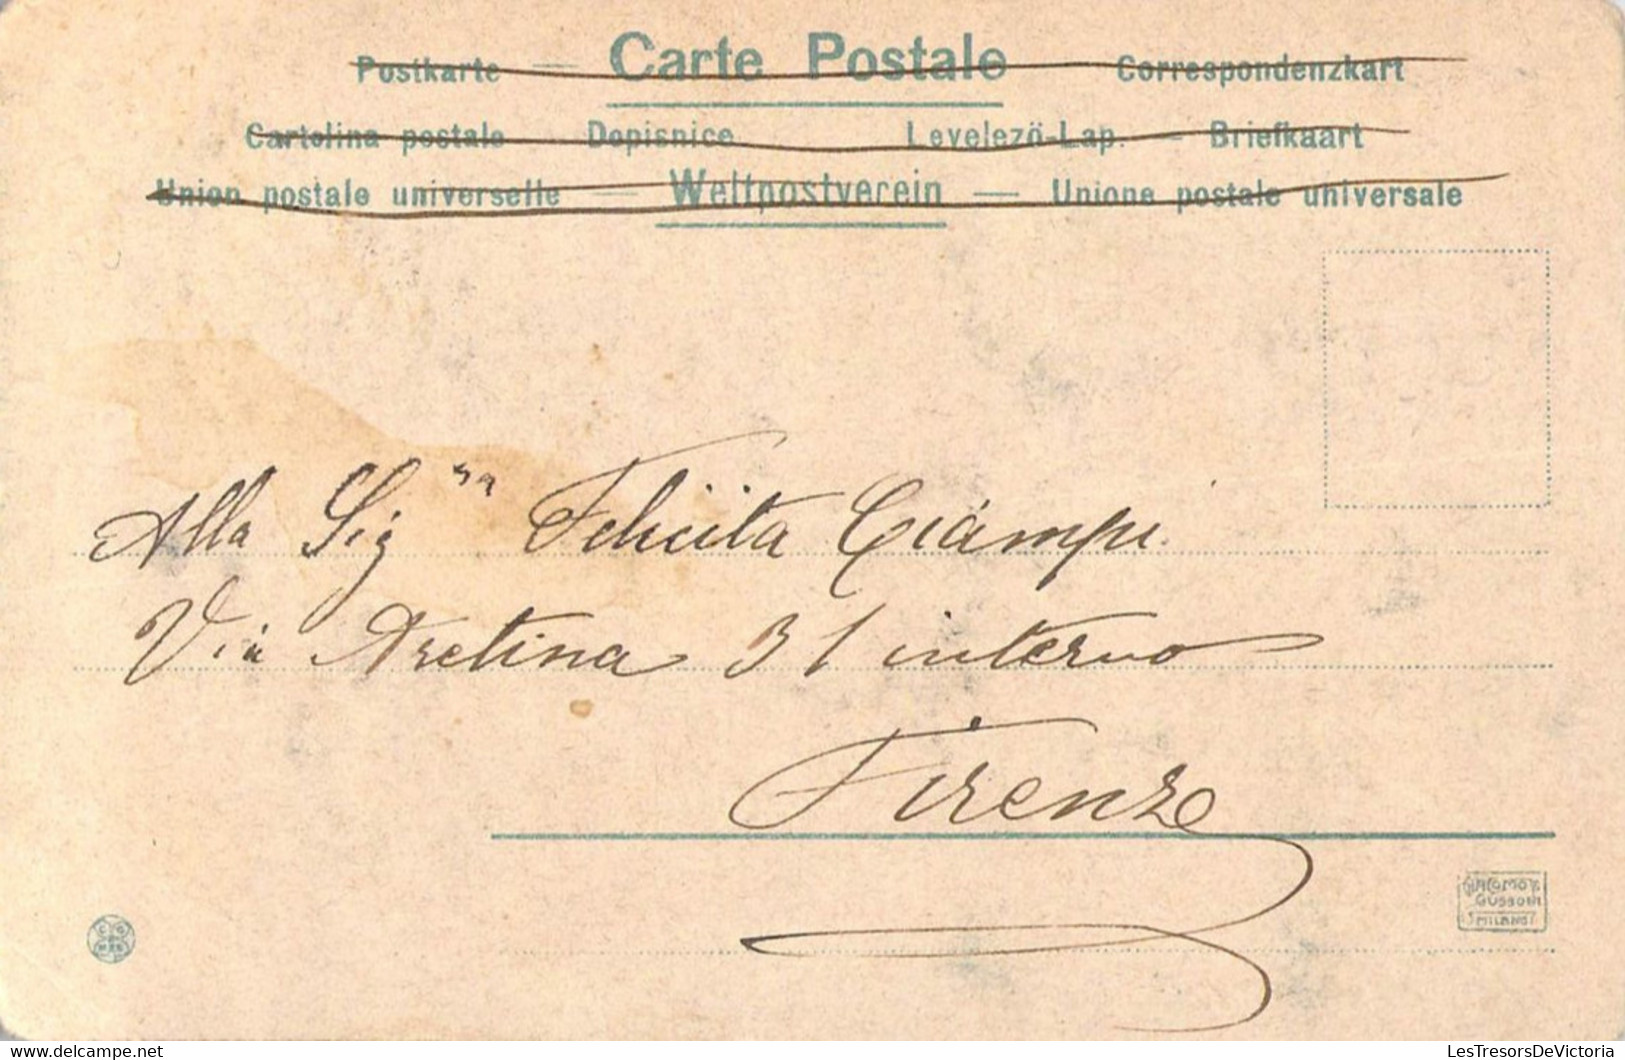 Postkarte — Carte Postale Correspondenzkart
Cartolina postale Dopisnice Levelezö-Lap. — Briefkaart
Union postale universelle — Weltpostverein — Unione postale universale
Alla Sig.ra Felicita Ciampi
Via Aretina 31 interno
Firenze
GIACOMO
GUSSONI
MILANO
LesTresorsDeVictoria
www.delcampe.net